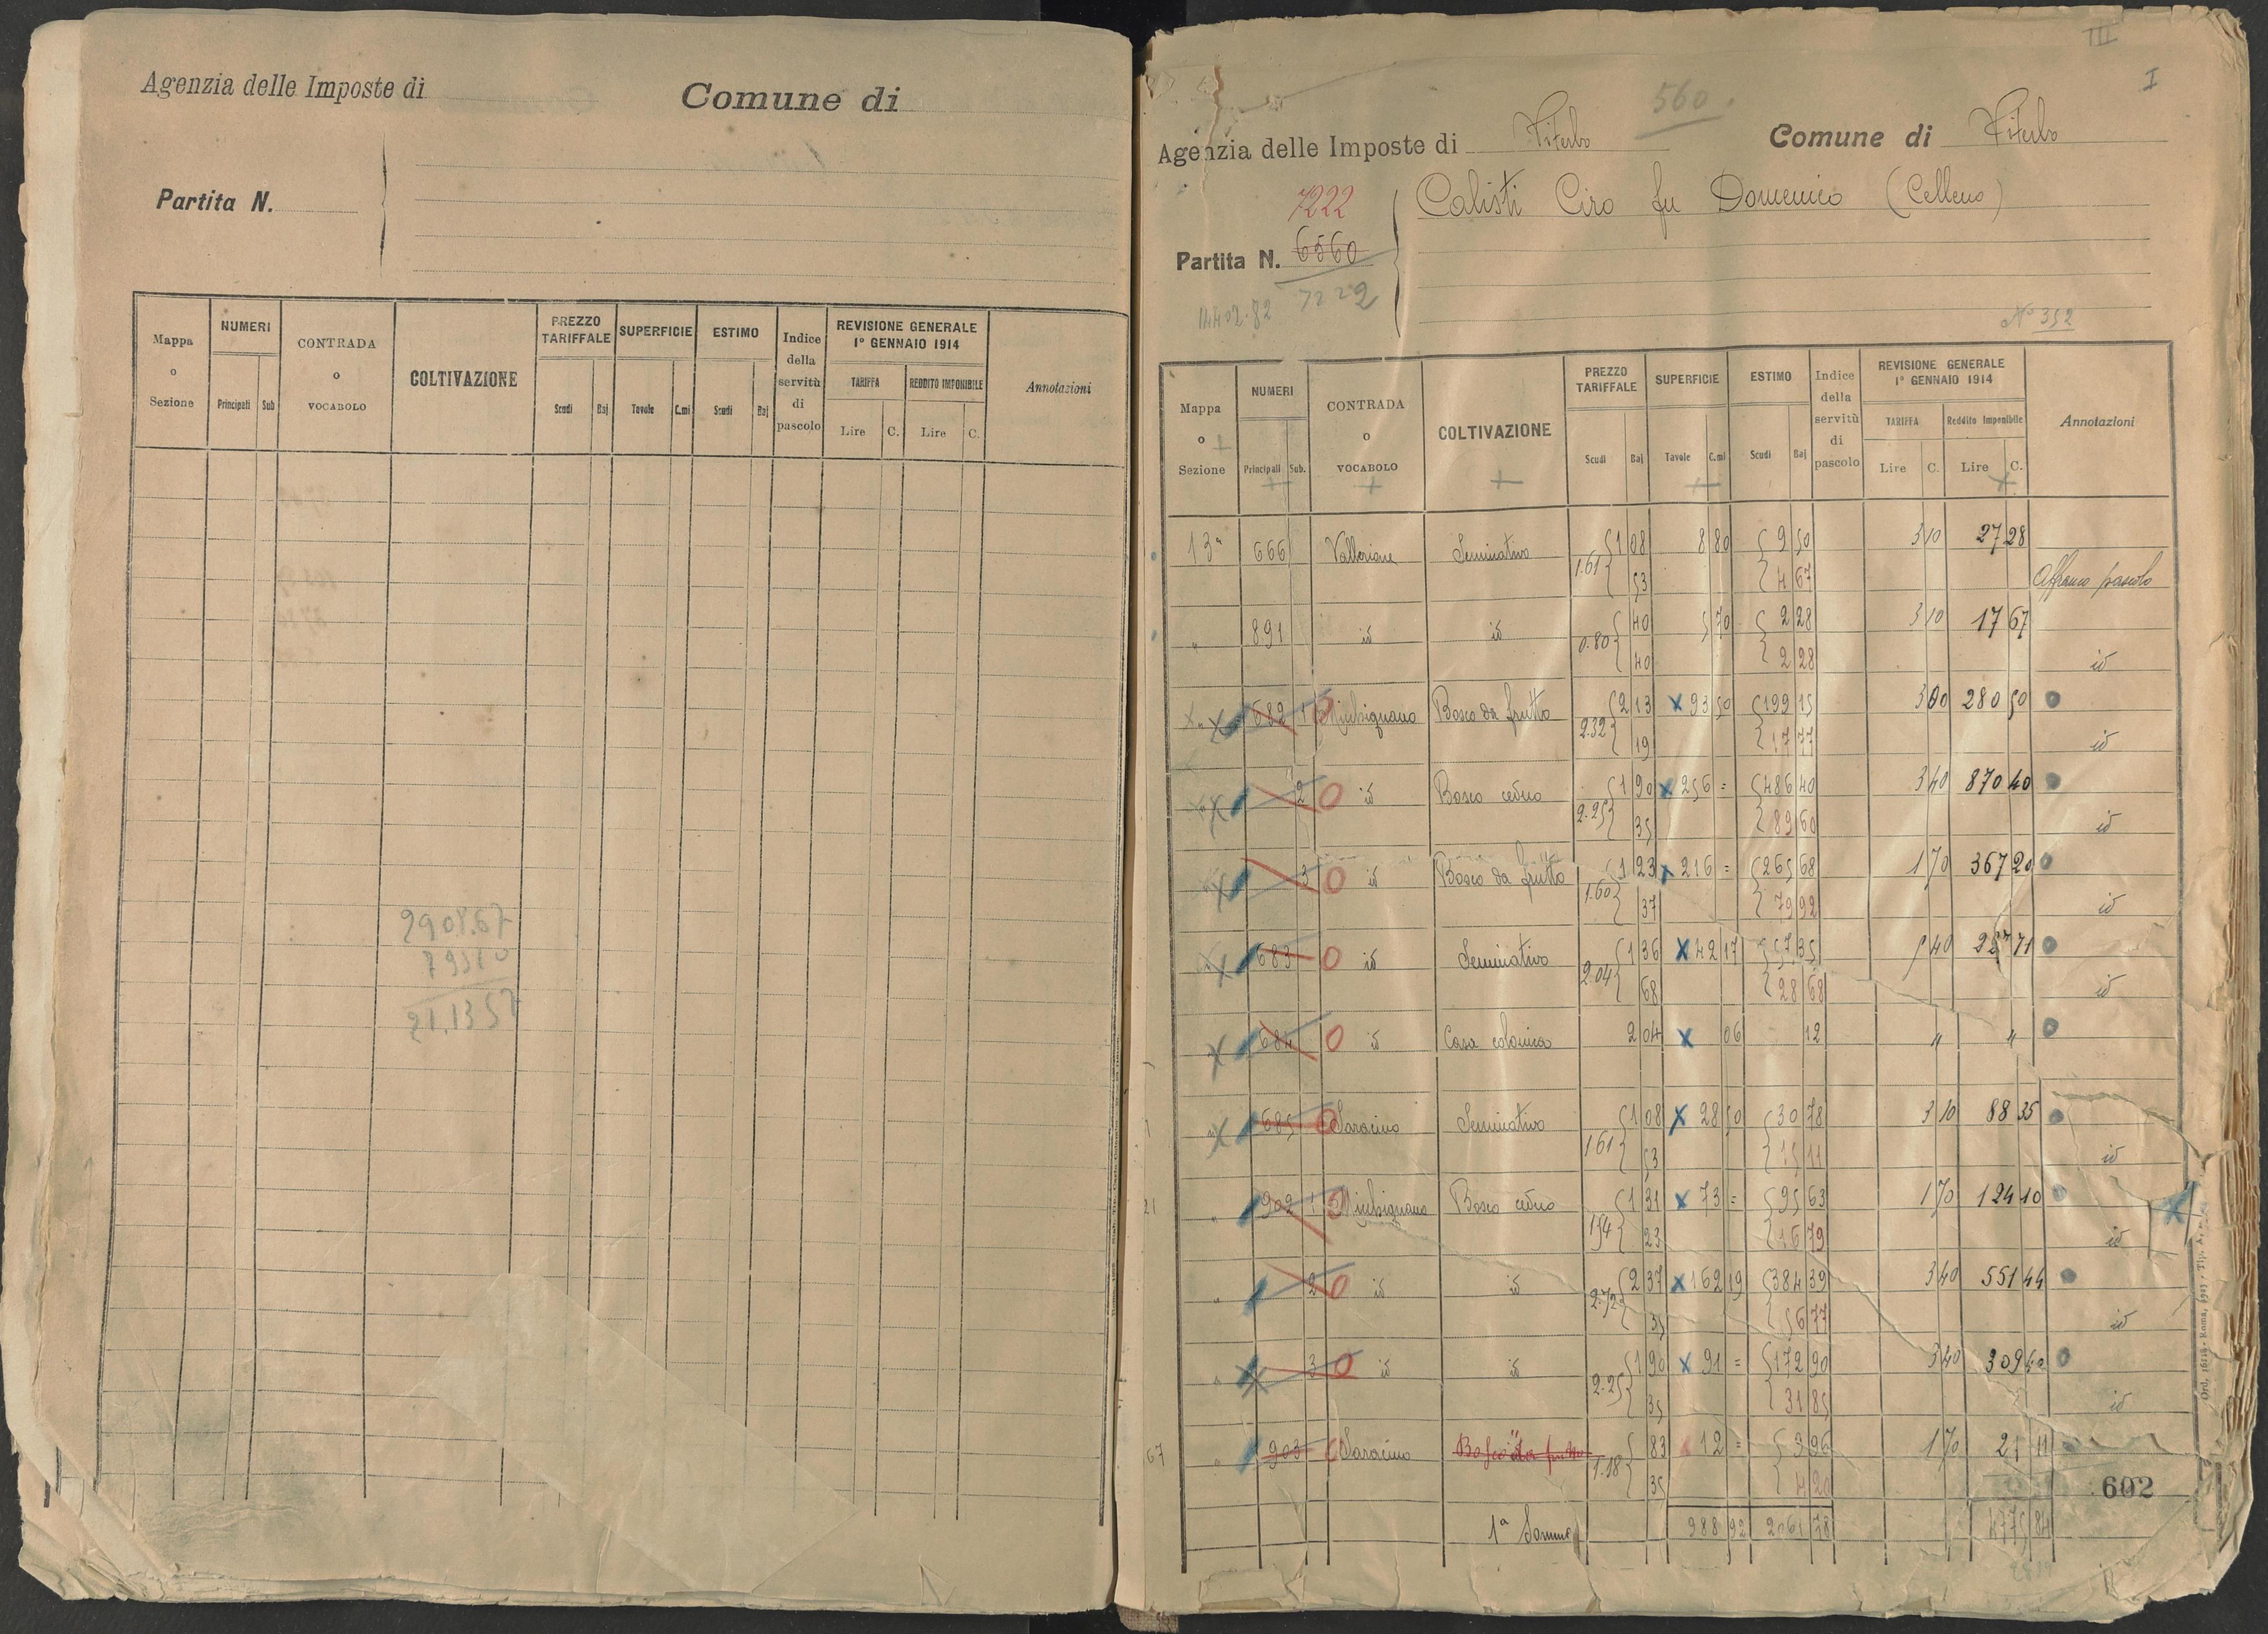 Agenzia delle Imposte di
Comune di
Partita N.
Mappa o Sezione
NUMERI
Principali Sub
CONTRADA o VOCABOLO
COLTIVAZIONE
PREZZO TARIFFALE
Scudi Baj
SUPERFICIE
Tavole C.mi
ESTIMO
Scudi Baj
Indice della servitù di pascolo
REVISIONE GENERALE
1º GENNAIO 1914
TARIFFA REDDITO IMPONIBILE
Lire C. Lire C.
Annotazioni
III
I
560
Agenzia delle Imposte di Viterbo
Comune di Viterbo
7222
Calisti Ciro fu Domenico (Celleno)
Partita N. 6560
7222
Nº 352
Mappa o Sezione
NUMERI
Principali Sub.
CONTRADA o VOCABOLO
COLTIVAZIONE
PREZZO TARIFFALE
Scudi Baj
SUPERFICIE
Tavole C.mi
ESTIMO
Scudi Baj
Indice della servitù di pascolo
REVISIONE GENERALE
1º GENNAIO 1914
TARIFFA Reddito Imponibile
Lire C. Lire C.
Annotazioni
13ª 666 Seminativo 1.61 1 08 8 80 9 50 3 10 27 28
53 4 67 Affranco pascolo
" 891 id id 0.80 40 5 70 2 28 3 10 17 67
40 2 28 id
" 682 1 Bosco da frutto 2.32 2 13 93 50 199 15 3 00 280 50
19 17 77 id
" 2 id Bosco ceduo 2.25 1 90 256 = 486 40 3 40 870 40
35 89 60 id
" 3 id Bosco da frutto 1.60 1 23 216 = 265 68 1 70 367 20
37 79 92 id
" 683 id Seminativo 2.04 1 36 42 17 57 35 5 40 227 71
68 28 68 id
" 684 id Casa colonica 2 04 06 12 " "
" 685 Saracino Seminativo 1.61 1 08 28 50 30 78 3 10 88 35
53 15 11 id
" 902 1 Bosco ceduo 1.54 1 31 73 = 95 63 1 70 124 10
23 16 79 id
" 2 id id 2.72 2 37 162 19 384 39 3 40 551 44
35 56 77 id
" 3 id id 2.25 1 90 91 = 172 90 3 40 309 40
35 31 85 id
" 903 Saracino Bosco da frutto 1.18 83 12 = 9 96 1 70
35 4 20
602
1ª Somma 988 92 2061 78 84